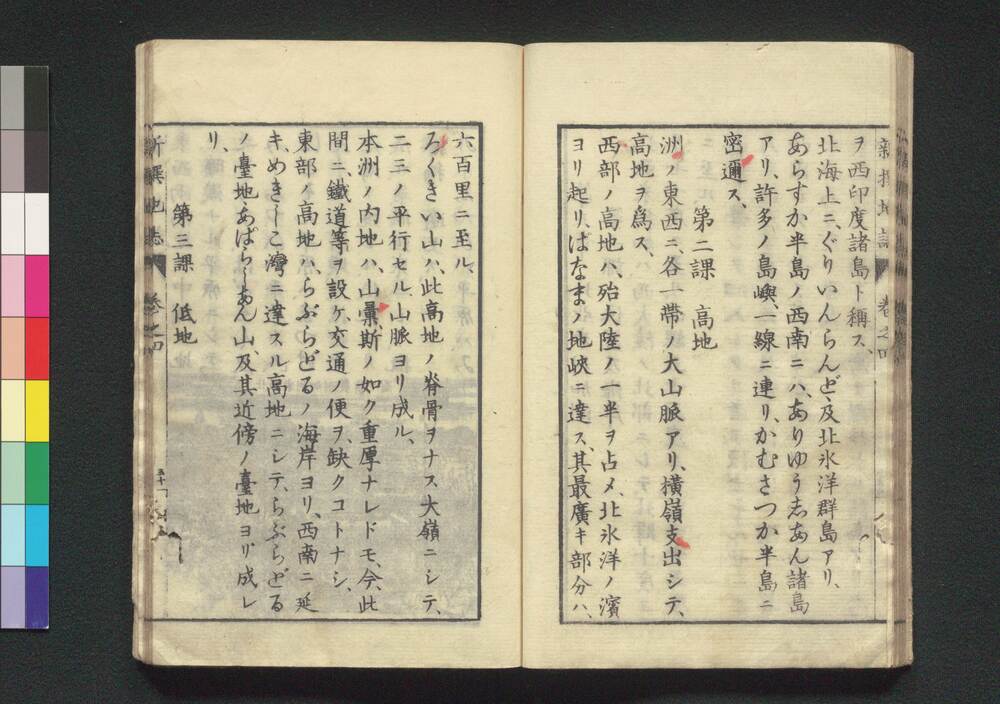 ヲ西印度諸島ト稱ス、
北海上ニ、ぐりいんらんど、及北氷洋群島アリ、
あらすか半島ノ西南ニハ、ありゆう志あん諸島
アリ、許多ノ島嶼、一線ニ連リ、かむさつか半島ニ
密邇ス、
第二課 高地
洲ノ東西ニ、各一帶ノ大山脈アリ、横嶺支出シテ、
高地ヲ爲ス、
西部ノ高地ハ、殆大陸ノ一半ヲ占メ、北氷洋ノ濱
ヨリ起リ、ぱなまノ地峽ニ達ス、其最廣キ部分ハ、
六百里ニ至ル、
ろくきい山ハ、此高地ノ脊骨ヲナス大嶺ニシテ、
二三ノ平行セル山脈ヨリ成ル、
本洲ノ内地ハ、山彙、斯ノ如ク重厚ナレドモ、今此
間ニ、鐵道等ヲ設ケ、交通ノ便ヲ缺クコトナシ、
東部ノ高地ハ、らぶらどるノ海岸ヨリ、西南ニ延
キ、めきしこ灣ニ達スル高地ニシテ、らぶらどる
ノ臺地、あぱらしあん山、及其近傍ノ臺地ヨリ成レ
リ、
第三課 低地
新撰地誌 卷之四